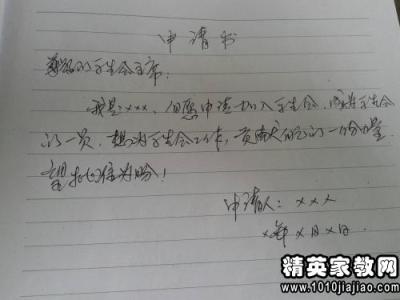 申请书
尊敬的学生会主席:
我是×××,很想申请加入学生会,成为学生会
的一员,想为学生会工作,贡献自己的一份力量.
望批准为盼!
申请人:×××
×年×月×日
精英家教网
www.1010jiajiao.com